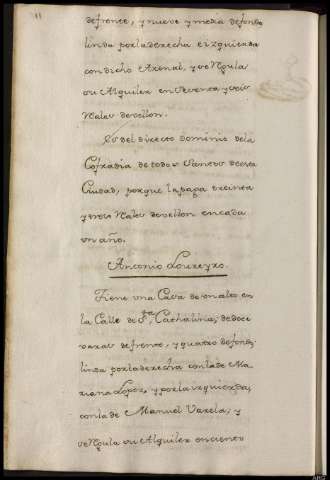 de frente, y nueve y media de fondo
linda por la derecha e izquierda
con dicho Arenal, y se regula
su Alquiler en sesenta y seis
reales de vellon.
Es del directo dominio de la
Cofradia de todos Santos de esta
Ciudad, porque la paga treinta
y tres reales de vellon en cada
un año.
Antonio Loureyro.
Tiene una Casa de un alto en
la Calle de Sta. Cathalina, de doce
varas de frente, y quatro de fondo,
linda por la derecha con la de Ma-
riana Lopez, y por la izquierda,
con la de Manuel Varela; y
se regula su Alquiler en ciento